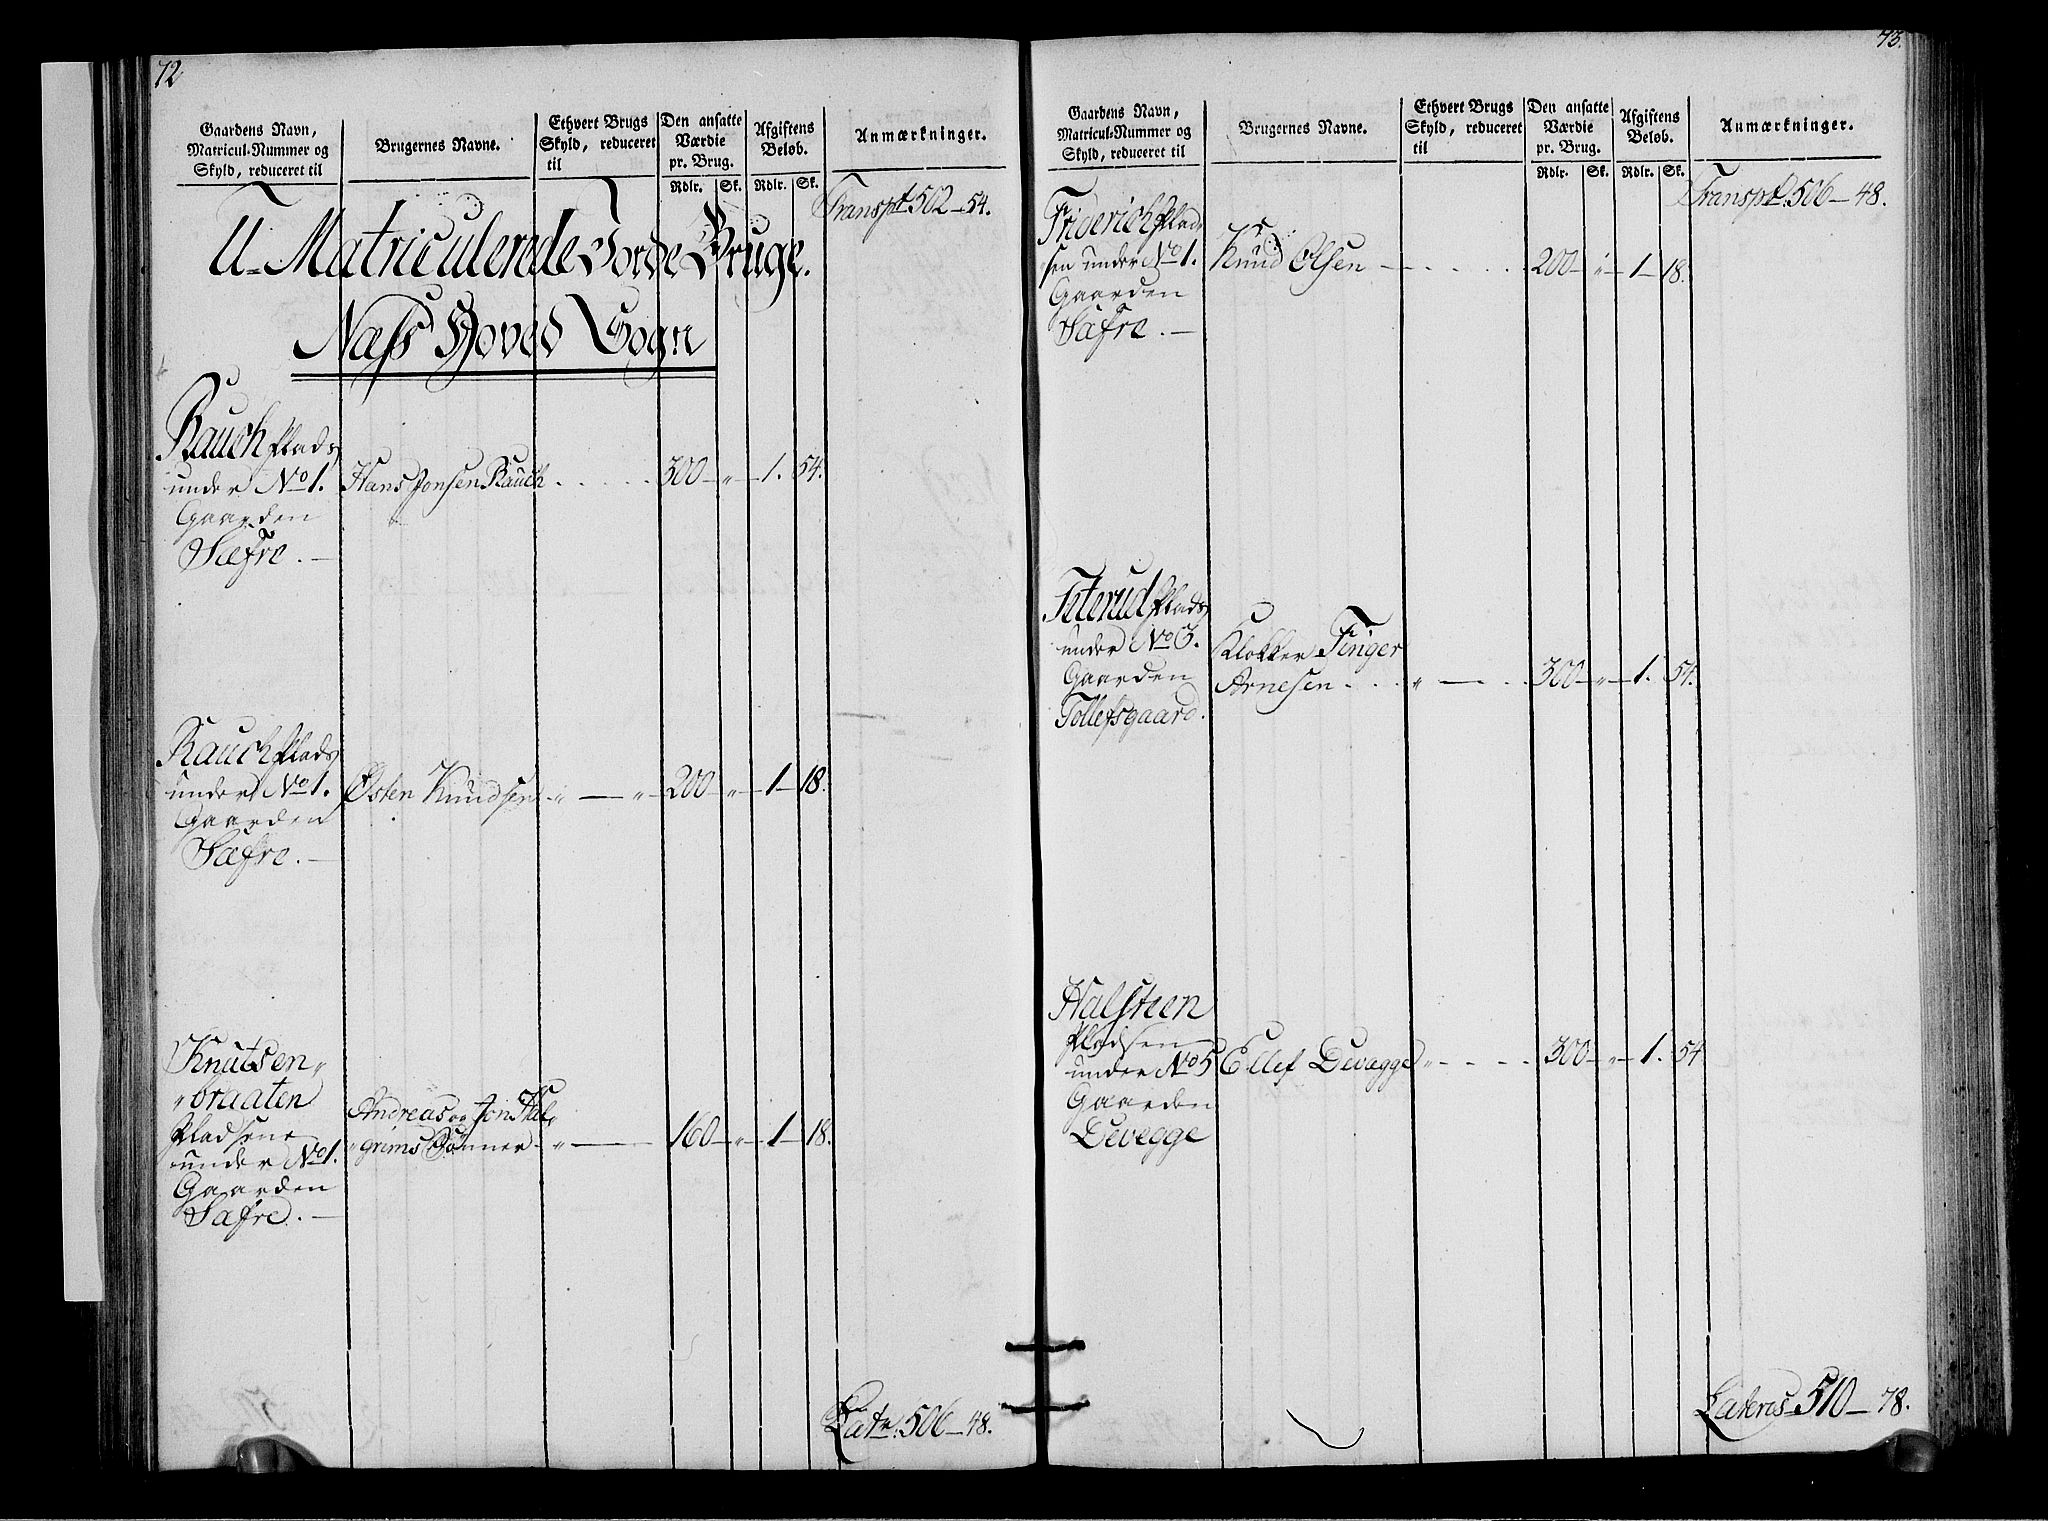 72.
Gaardens Navn,
Matricul-Nummer og
Skyld, reduceret til
Brugernes Navne.
Ethvert Brugs
Skyld, reduceret
til
Den ansatte
Værdie
pr. Brug.
Rdlr. Sk.
Afgiftens
Beløb.
Rdlr. Sk.
Anmærkninger.
Transpt. 502 — 54.
U-Matriculerede Jorde Bruge.
Næss Hoved Sogn
Rauch Plads
under No 1. Hans Jonsen Rauch . . . . . 300 — „ — 1. 54.
Gaarden
Sæfre. —
Rauch Plads
under No 1. Østen Knudsen - „ — „ — 200 — „ — 1 — 18.
Gaarden
Sæfre. —
Knutsen„
„braaten
Pladsene Andreas og Jon Hal„
under No 1. „grims Sønner - „ — 160 — „ — 1 — 18.
Gaarden
Sæfre. —
Latr. 506 — 48.
73.
Gaardens Navn,
Matricul-Nummer og
Skyld, reduceret til
Brugernes Navne.
Ethvert Brugs
Skyld, reduceret
til
Den ansatte
Værdie
pr. Brug.
Rdlr. Sk.
Afgiftens
Beløb.
Rdlr. Sk.
Anmærkninger.
Transpt. 506 — 48.
Friderich Plad-
sen under No 1. Knud Olsen — . . . . . 200 — „ — 1 — 18.
Gaarden
Sæfre. —
Teterud Plads
under No 3. Klokker Finger
Gaarden Arnesen . . . „ — . . 300 — „ — 1. 54.
Tollefsgaard.
Halsteen
Pladsen
under No 5 Ellef Devegge „ - . - . - 300 — „ — 1. 54
Gaarden
Devegge
Lateris 510 — 78.